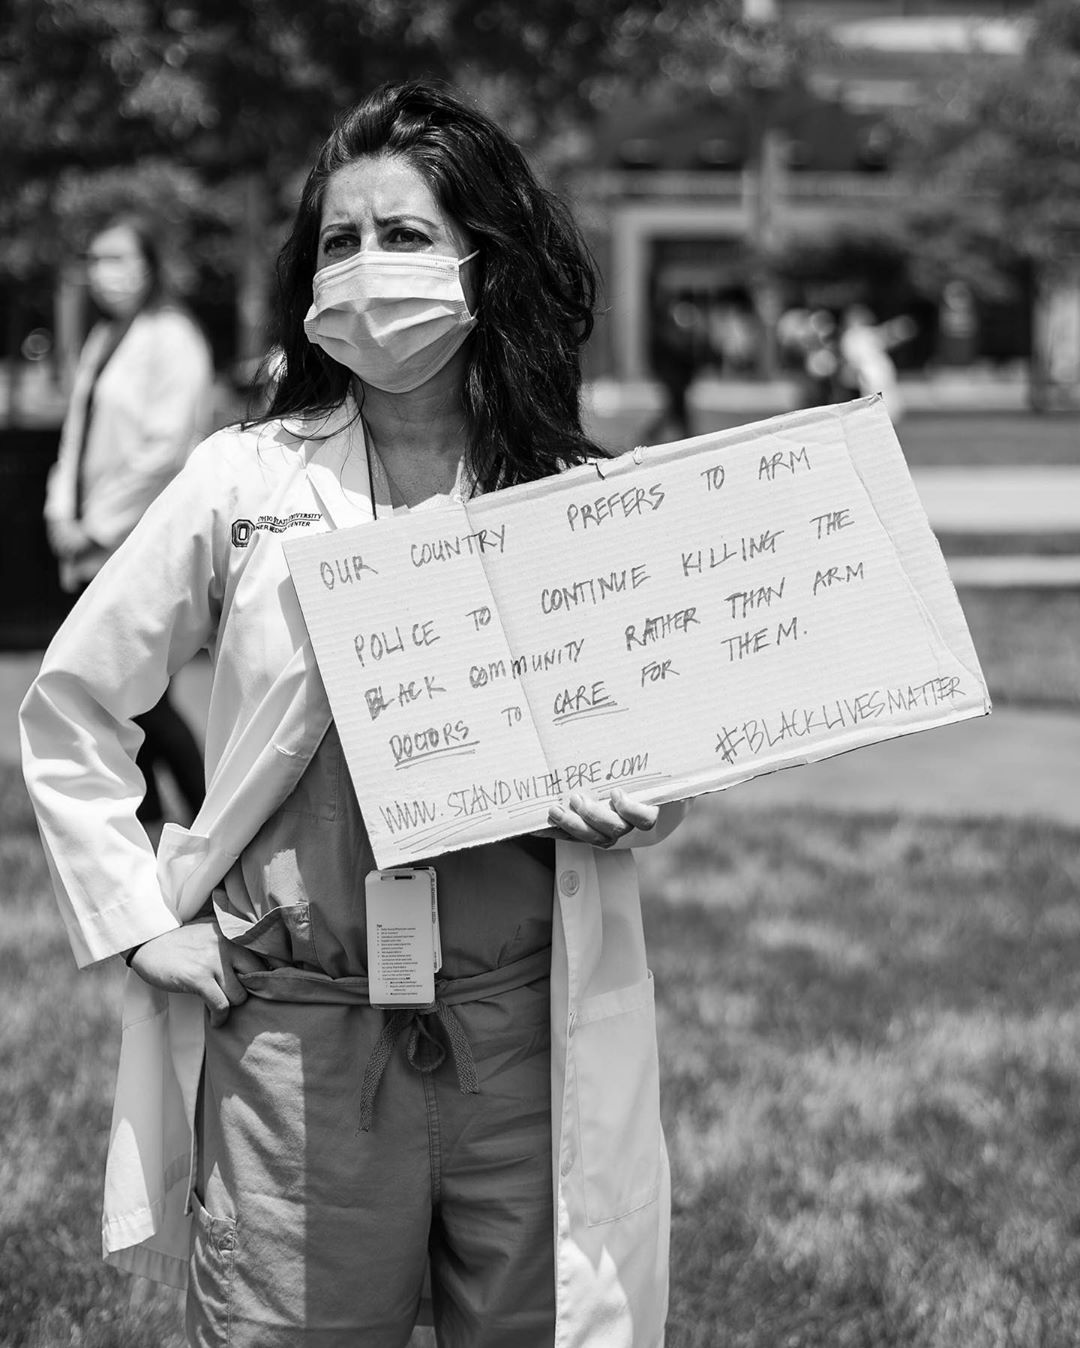 OHIO STATE UNIVERSITY
MEDICAL CENTER
OUR COUNTRY PREFERS TO ARM
POLICE TO CONTINUE KILLING THE
BLACK COMMUNITY RATHER THAN ARM
DOCTORS TO CARE FOR THEM.
WWW.STANDWITHBRE.COM #BLACKLIVESMATTER